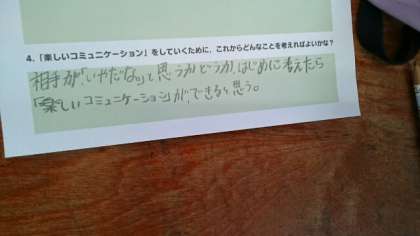 4.「楽しいコミュニケーション」をしていくために、これからどんなことを考えればよいかな？
相手が「いやだな」と思うかどうか、はじめに考えたら
「楽しいコミュニケーション」が、できると思う。